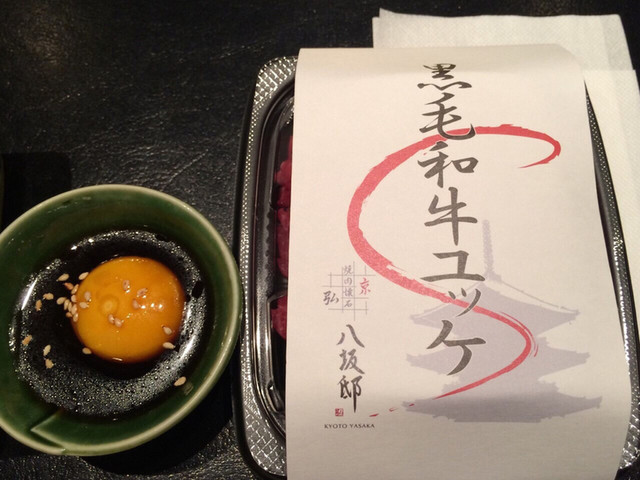 黒毛和牛ユッケ
京
焼肉懐石
弘
八坂邸
KYOTO YASAKA